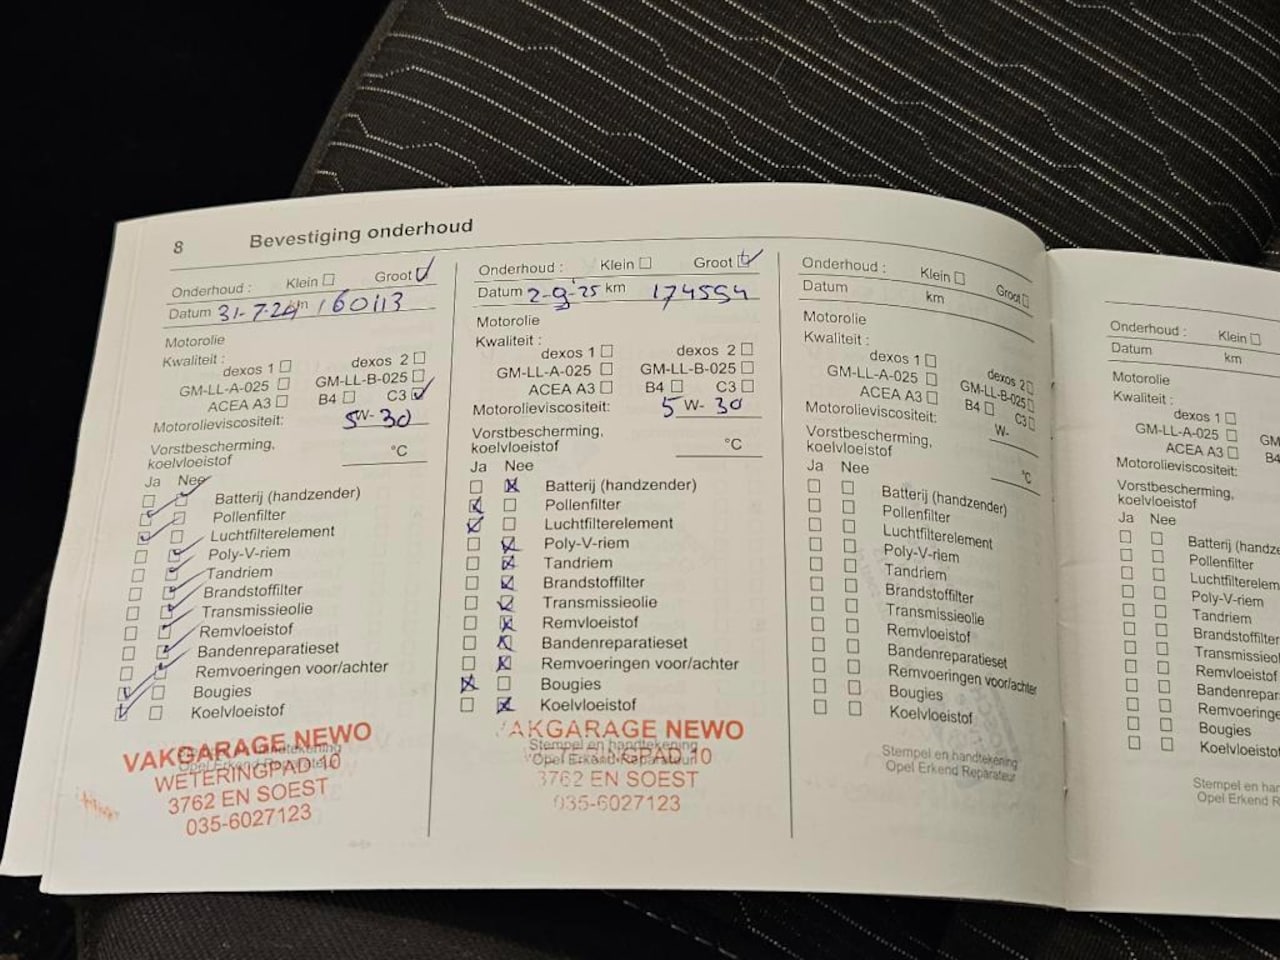 8 Bevestiging onderhoud
Onderhoud : Klein Groot
Datum 31-7-24 km 160113
Motorolie
Kwaliteit :
dexos 1 dexos 2
GM-LL-A-025 GM-LL-B-025
ACEA A3 B4 C3
Motorolieviscositeit: 5W-30
Vorstbescherming,
koelvloeistof °C
Ja Nee
Batterij (handzender)
Pollenfilter
Luchtfilterelement
Poly-V-riem
Tandriem
Brandstoffilter
Transmissieolie
Remvloeistof
Bandenreparatieset
Remvoeringen voor/achter
Bougies
Koelvloeistof
Stempel en handtekening
Opel Erkend Reparateur
VAKGARAGE NEWO
WETERINGPAD 10
3762 EN SOEST
035-6027123
Onderhoud : Klein Groot
Datum 2-9-25 km 174554
Motorolie
Kwaliteit :
dexos 1 dexos 2
GM-LL-A-025 GM-LL-B-025
ACEA A3 B4 C3
Motorolieviscositeit: 5W-30
Vorstbescherming,
koelvloeistof °C
Ja Nee
Batterij (handzender)
Pollenfilter
Luchtfilterelement
Poly-V-riem
Tandriem
Brandstoffilter
Transmissieolie
Remvloeistof
Bandenreparatieset
Remvoeringen voor/achter
Bougies
Koelvloeistof
Stempel en handtekening
Opel Erkend Reparateur
AKGARAGE NEWO
WETERINGPAD 10
3762 EN SOEST
035-6027123
Onderhoud : Klein Groot
Datum km
Motorolie
Kwaliteit :
dexos 1 dexos 2
GM-LL-A-025 GM-LL-B-025
ACEA A3 B4 C3
Motorolieviscositeit: W-
Vorstbescherming,
koelvloeistof °C
Ja Nee
Batterij (handzender)
Pollenfilter
Luchtfilterelement
Poly-V-riem
Tandriem
Brandstoffilter
Transmissieolie
Remvloeistof
Bandenreparatieset
Remvoeringen voor/achter
Bougies
Koelvloeistof
Stempel en handtekening
Opel Erkend Reparateur
Onderhoud : Klein
Datum km
Motorolie
Kwaliteit :
dexos 1
GM-LL-A-025 GM
ACEA A3 B4
Motorolieviscositeit:
Vorstbescherming,
koelvloeistof
Ja Nee
Batterij (handze
Pollenfilter
Luchtfilterelem
Poly-V-riem
Tandriem
Brandstoffilter
Transmissieol
Remvloeistof
Bandenrepar
Remvoeringe
Bougies
Koelvloeisto
Stempel en har
Opel Erkend R